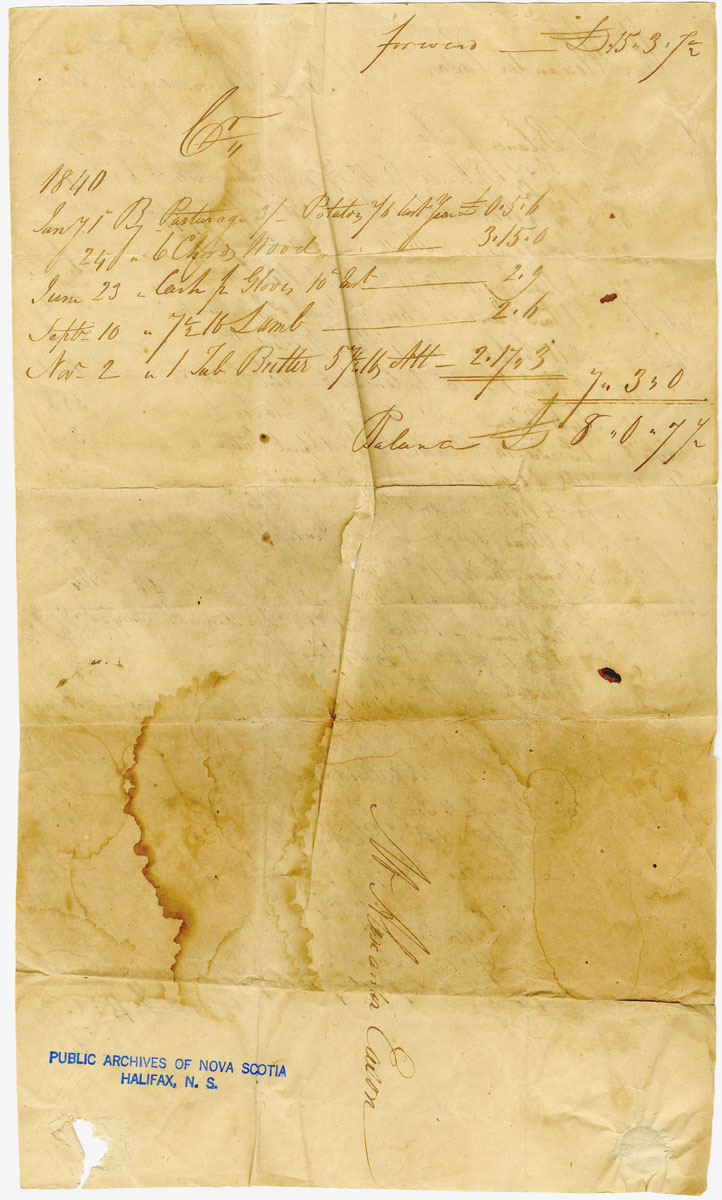 forward — £15"3"7½
Cr
1840
Jany 1 By Pasturage 3/– Potatoes 2/6 last Year £0.5.6
24 " 6 Chords Wood — 3.15.0
June 23 " Cash p Gloves 10th Inst — 2.9
Septr 10 " 7½ lb Lamb — 2.6
Novr 2 " 1 Tub Butter 57½ lb — 2.17"3
7"3"0
Balance £8"0"7½
Mr Alexander Eason
PUBLIC ARCHIVES OF NOVA SCOTIA
HALIFAX, N. S.